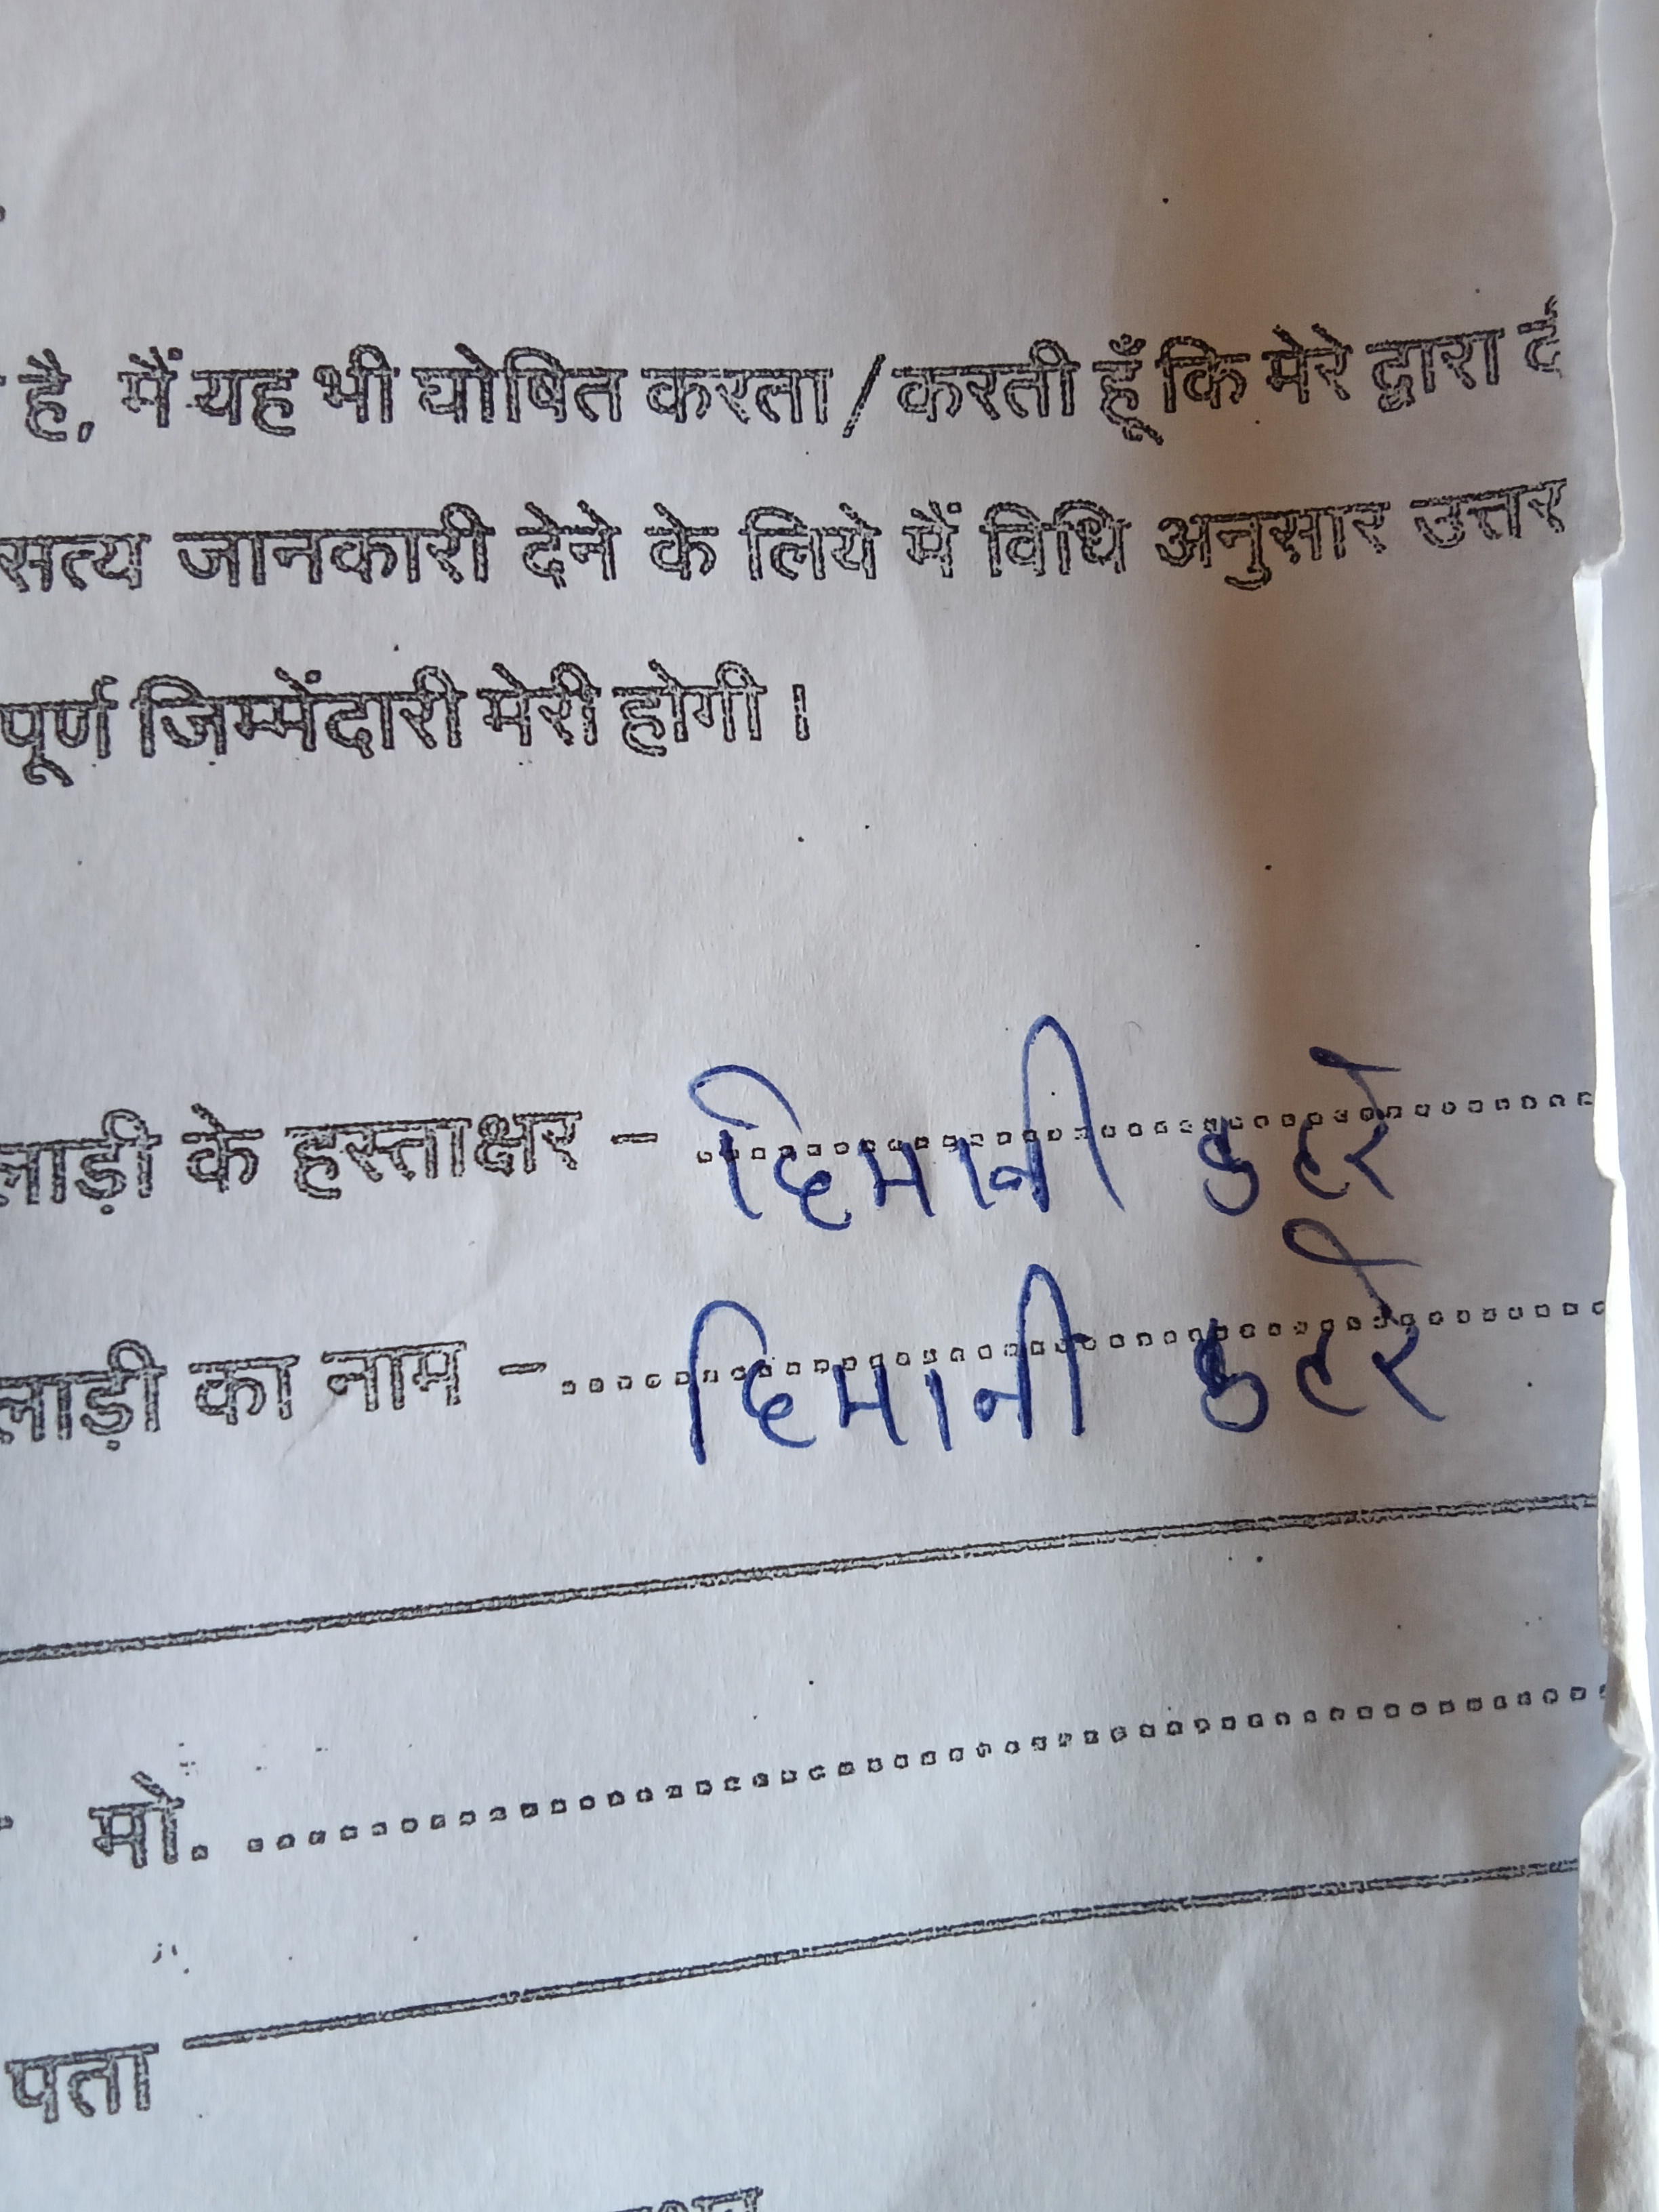 है, मैं यह भी घोषित करता / करती हूँ कि मेरे द्वारा
सत्य जानकारी देने के लिये मैं विधि अनुसार उत्तर
पूर्ण जिम्मेंदारी मेरी होगी।
लाड़ी के हस्ताक्षर - हिमानी डहरे
लाड़ी का नाम - हिमानी डहरे
मो.
पता